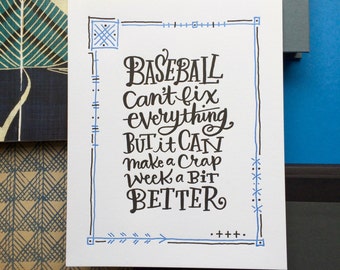 BASEBALL
can't fix
everything,
BUT it CAN
make a crap
week a bit
BETTER